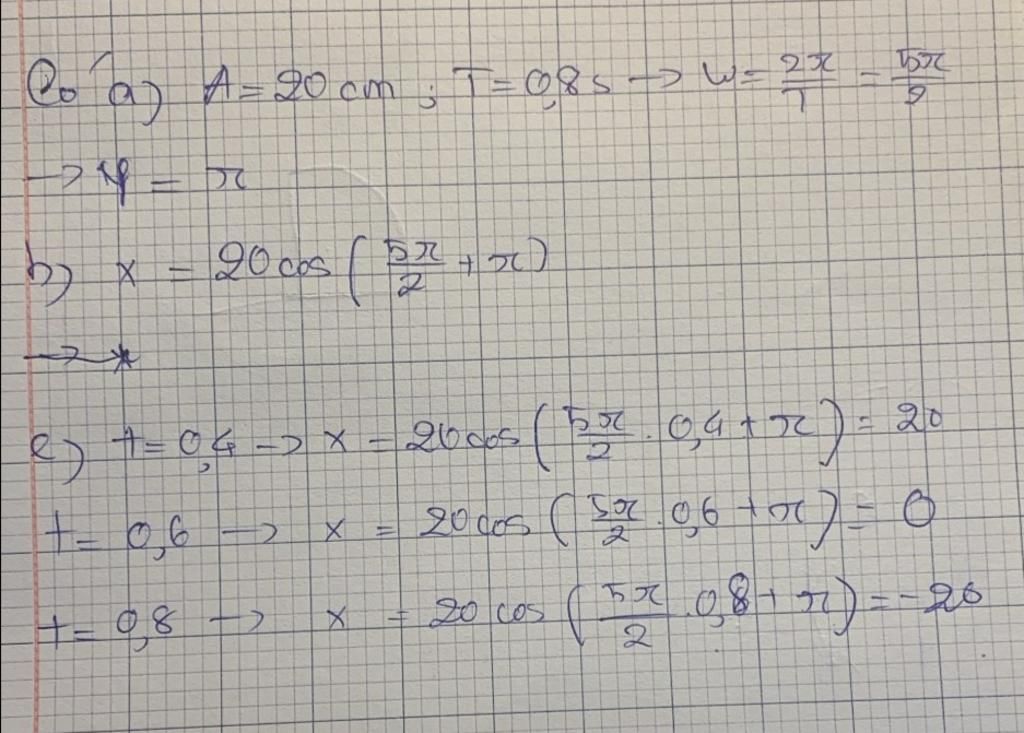 a) A = 20 cm ; T = 0,8 s → ω = 2π/T = 5π/2
→ φ = π
b) x = 20 cos ( 5π/2 + π )
→
c) t = 0,4 → x = 20 cos ( 5π/2 . 0,4 + π ) = 20
t = 0,6 → x = 20 cos ( 5π/2 . 0,6 + π ) = 0
t = 0,8 → x = 20 cos ( 5π/2 . 0,8 + π ) = -20